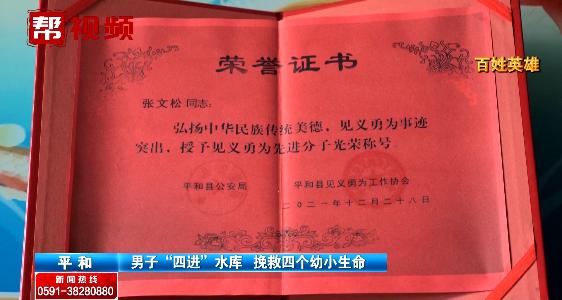 帮视频
百姓英雄
荣誉证书
张文松 同志：
弘扬中华民族传统美德，见义勇为事迹
突出，授予见义勇为先进分子光荣称号。
平和县公安局
平和县见义勇为工作协会
二〇二一年十二月二十八日
平和
男子“四进”水库 挽救四个幼小生命
新闻热线
0591-38280880